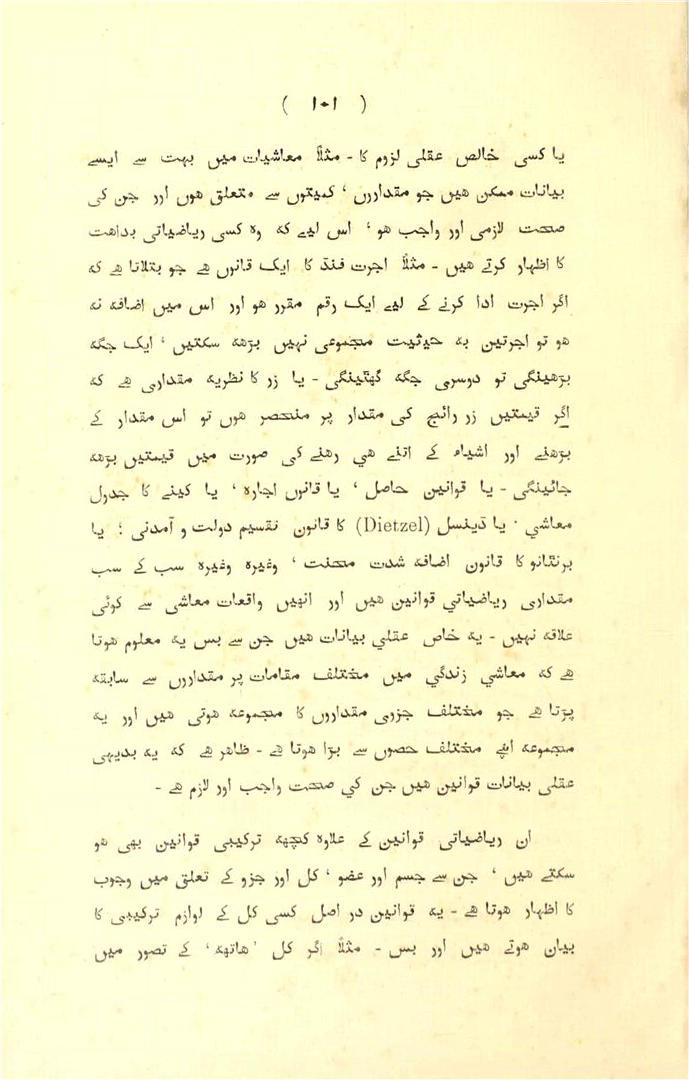 ( ۱۰۱ )
یا کسی خالص عقلی لزوم کا - مثلاً معاشیات میں بہت سے ایسے
بیانات ممکن هیں جو مقداروں ، کمیتوں سے متعلق هوں اور جن کی
صحت لازمی اور واجب هو ، اس لیے کہ وہ کسی ریاضیاتی بداهت
کا اظہار کرتے هیں - مثلاً اجرت فنڈ کا ایک قانوں هے جو بتلاتا هے کہ
اگر اجرت ادا کرنے کے لیے ایک رقم مقرر هو اور اس میں اضافہ نہ
هو تو اجرتیں بہ حیثیت مجموعی نہیں بڑھ سکتیں ، ایک جگہ
بڑھینگی تو دوسری جگہ گھٹینگی - یا زر کا نظریہ مقداری هے کہ
اگر قیمتیں زر رائج کی مقدار پر منحصر هوں تو اس مقدار کے
بڑھنے اور اشیاء کے اتنے هي رهنے کی صورت میں قیمتیں بڑھ
جائینگی - یا قوانین حاصل ، یا قانوں اجارہ ، یا کینے کا جدول
معاشي ۔ یا ڈیٹسل (Dietzel) کا قانون تقسیم دولت و آمدنی ؛ یا
برنٹانو کا قانون اضافہ شدت محنت ، وغیرہ وغیرہ سب کے سب
مقداری ریاضیاتي قوانین هیں اور انهیں واقعات معاشی سے کوئی
علاقہ نہیں - یہ خاص عقلي بیانات هیں جن سے بس یہ معلوم هوتا
هے کہ معاشي زندگي میں مختلف مقامات پر مقداروں سے سابقہ
پڑتا هے جو مختلف جزوی مقداروں کا مجموعہ هوتی هیں اور یہ
مجموعہ اپنے مختلف حصوں سے بڑا هوتا هے - ظاهر هے کہ یہ بدیہی
عقلی بیانات قوانین هیں جن کي صحت واجب اور لازم هے -
ان ریاضیاتی قوانین کے علاوہ کچھہ ترکیبی قوانین بھی هو
سکتے هیں ، جن سے جسم اور عضو ، کل اور جزو کے تعلق میں وجوب
کا اظہار هوتا هے - یہ قوانین در اصل کسی کل کے لوازم ترکیبی کا
بیان هوتے هیں اور بس - مثلاً اگر کل 'هاتھہ' کے تصور میں